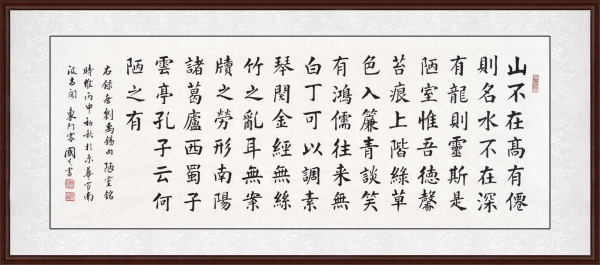 山不在高有僊
則名水不在深
有龍則靈斯是
陋室惟吾德馨
苔痕上階綠草
色入簾青談笑
有鴻儒往來無
白丁可以調素
琴閱金經無絲
竹之亂耳無案
牘之勞形南陽
諸葛廬西蜀子
雲亭孔子云何
陋之有
右錄劉禹錫陋室銘
時維丙申初秋於京華宣南
國書